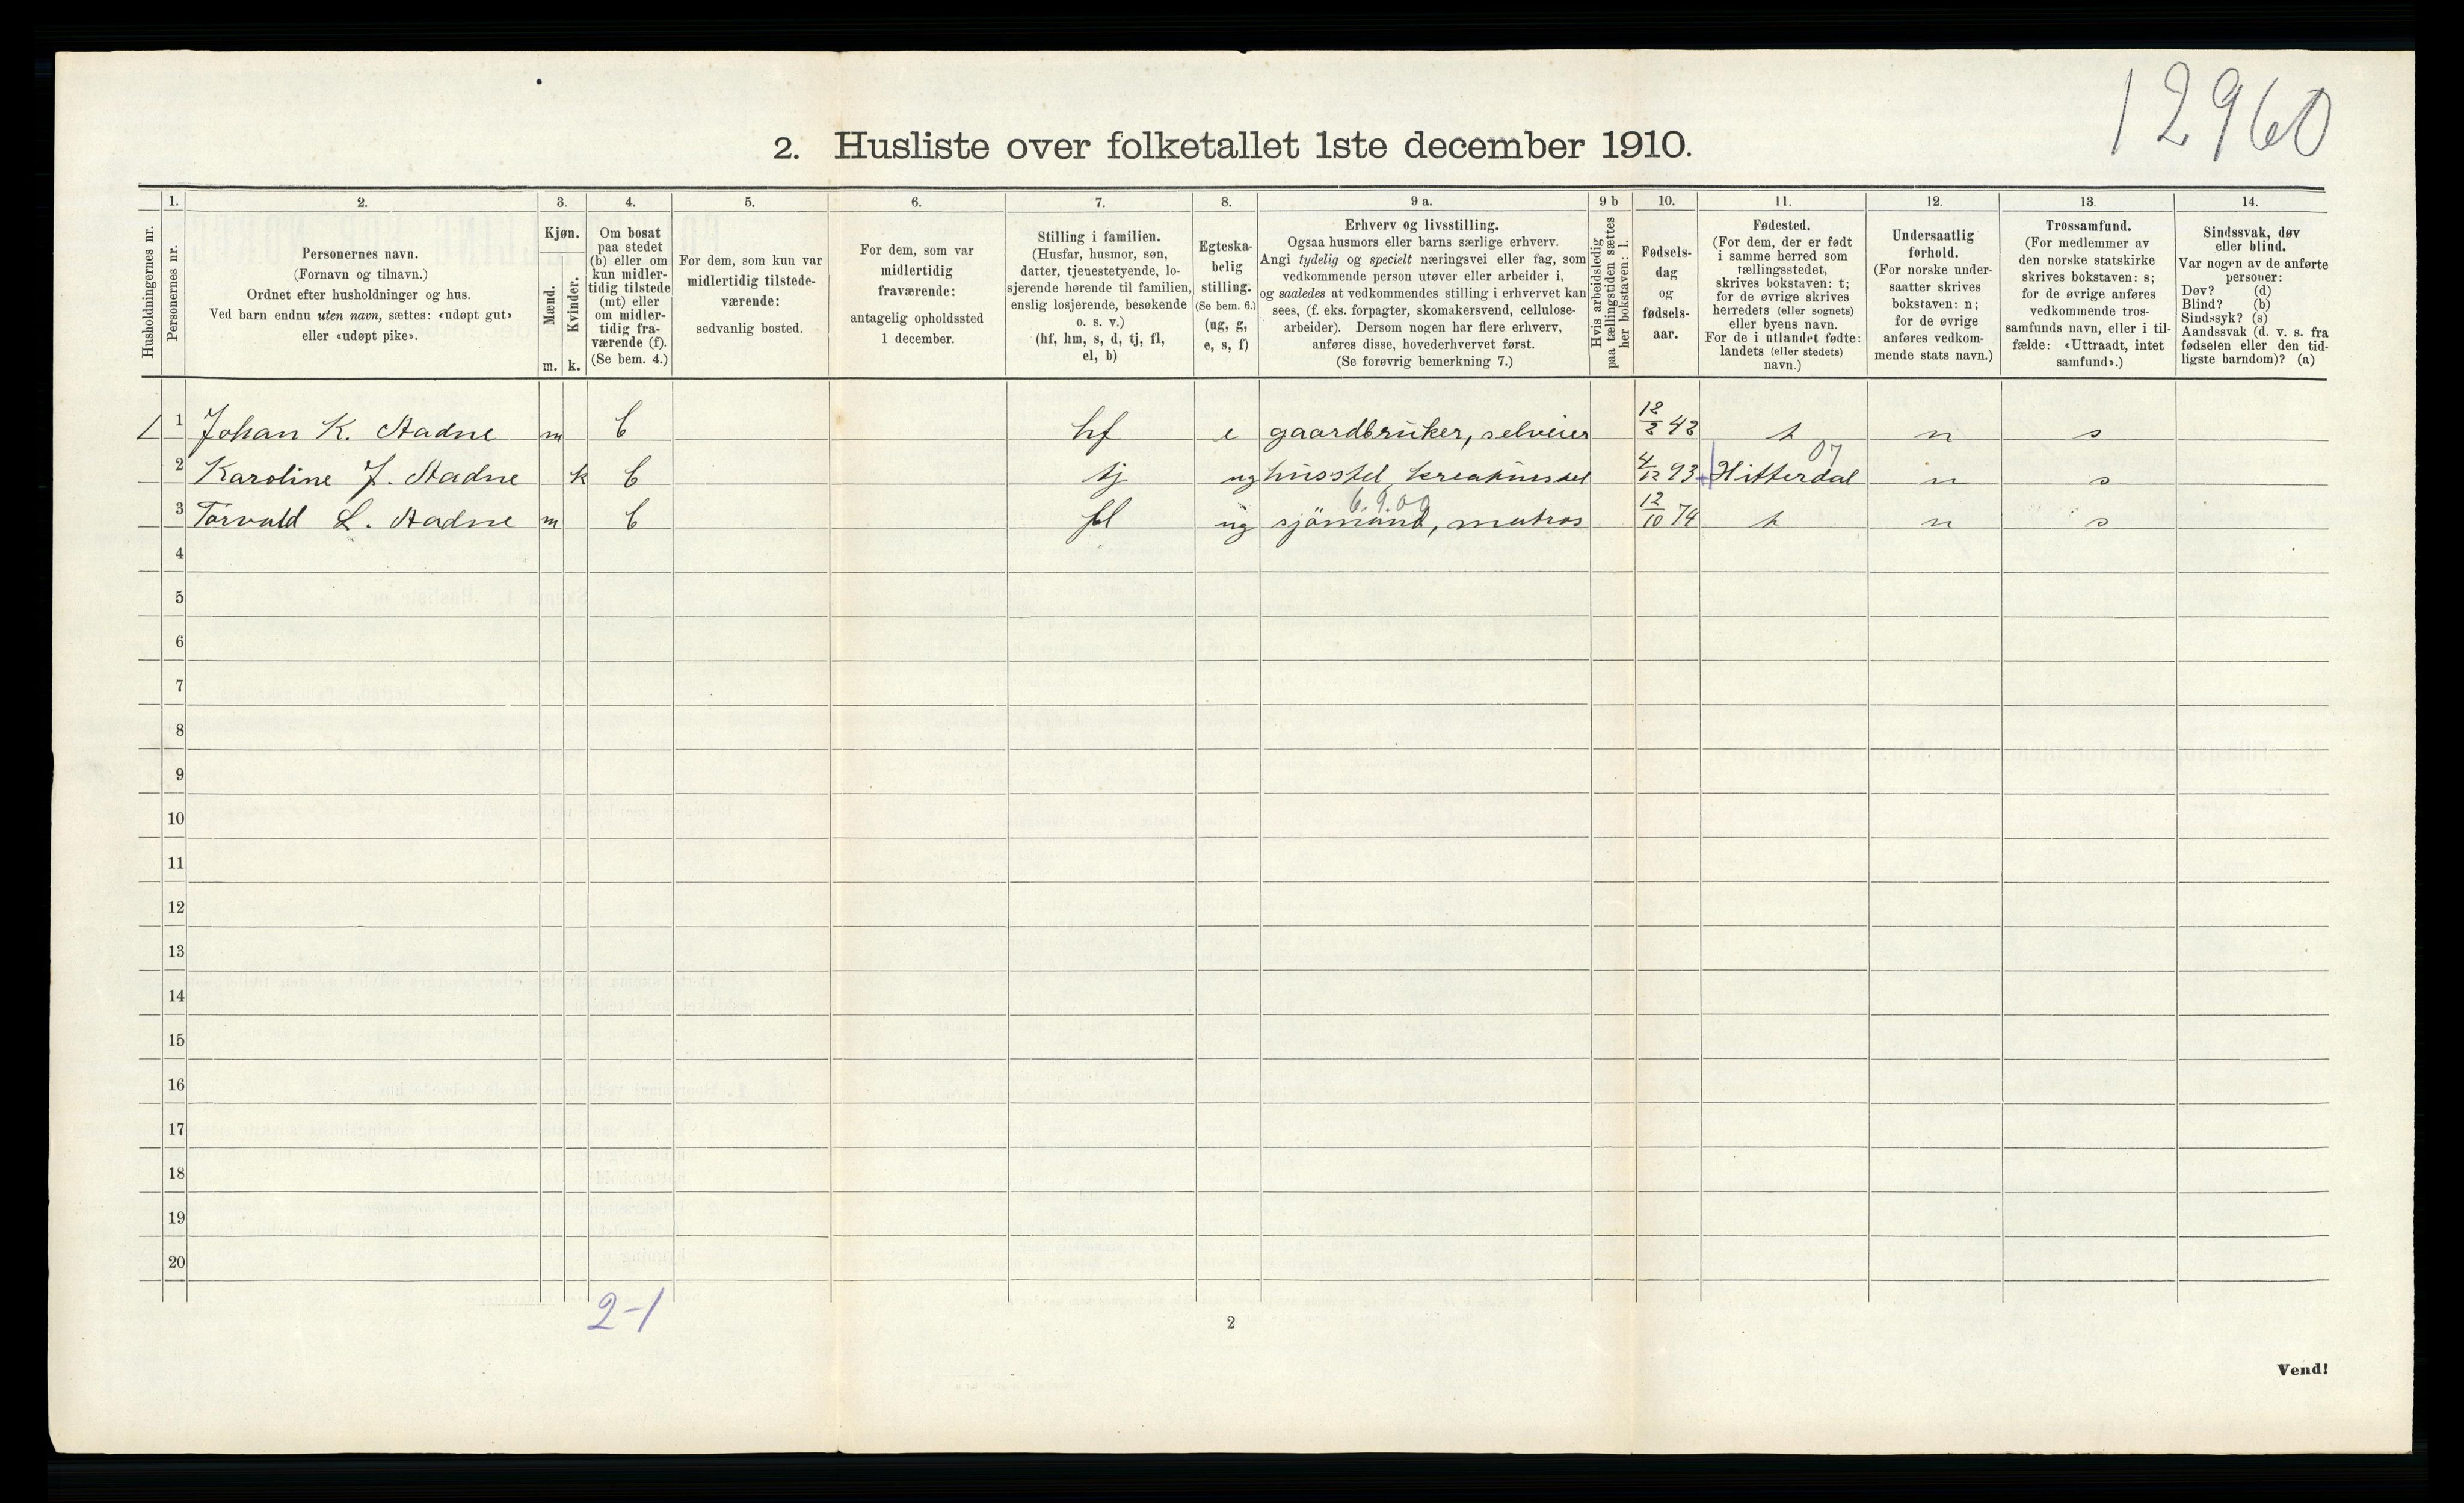 12960
2. Husliste over folketallet 1ste december 1910.
Husholdningernes nr.
1.
Personernes nr.
2.
Personernes navn.
(Fornavn og tilnavn.)
Ordnet efter husholdninger og hus.
Ved barn endnu uten navn, sættes: «udøpt gut»
eller «udøpt pike».
3.
Kjøn.
Mænd.
Kvinder.
m. k.
4.
Om bosat
paa stedet
(b) eller om
kun midler-
tidig tilstede
(mt) eller
om midler-
tidig fra-
værende (f).
(Se bem. 4.)
5.
For dem, som kun var
midlertidig tilstede-
værende:
sedvanlig bosted.
6.
For dem, som var
midlertidig
fraværende:
antagelig opholdssted
1 december.
7.
Stilling i familien.
(Husfar, husmor, søn,
datter, tjenestetyende, lo-
sjerende hørende til familien,
enslig losjerende, besøkende
o. s. v.)
(hf, hm, s, d, tj, fl,
el, b)
8.
Egteska-
belig
stilling.
(Se bem. 6.)
(ug, g,
e, s, f)
9 a.
Erhverv og livsstilling.
Ogsaa husmors eller barns særlige erhverv.
Angi tydelig og specielt næringsvei eller fag, som
vedkommende person utøver eller arbeider i,
og saaledes at vedkommendes stilling i erhvervet kan
sees, (f. eks. forpagter, skomakersvend, cellulose-
arbeider). Dersom nogen har flere erhverv,
anføres disse, hovederhvervet først.
(Se forøvrig bemerkning 7.)
9 b
Hvis arbeidsledig
paa tællingstiden sættes
her bokstaven: l.
10.
Fødsels-
dag
og
fødsels-
aar.
11.
Fødested.
(For dem, der er født
i samme herred som
tællingsstedet,
skrives bokstaven: t;
for de øvrige skrives
herredets (eller sognets)
eller byens navn.
For de i utlandet fødte:
landets (eller stedets)
navn.)
12.
Undersaatlig
forhold.
(For norske under-
saatter skrives
bokstaven: n;
for de øvrige
anføres vedkom-
mende stats navn.)
13.
Trossamfund.
(For medlemmer av
den norske statskirke
skrives bokstaven: s;
for de øvrige anføres
vedkommende tros-
samfunds navn, eller i til-
fælde: «Uttraadt, intet
samfund».)
14.
Sindssvak, døv
eller blind.
Var nogen av de anførte
personer:
Døv? (d)
Blind? (b)
Sindssyk? (s)
Aandssvak (d. v. s. fra
fødselen eller den tid-
ligste barndom)? (a)
1 1 Johan K. Stadne m b hf e gaardbruker, selveier 43 t n s
07
2 Karoline J. Stadne k b tj ug husstel, kreaturstel 4/12 93 Hitterdal n s
6.9.00
3 Torvald L. Stadne m b fl ug sjömand, matros 12/10 74 t n s
4
5
6
7
8
9
10
11
12
13
14
15
16
17
18
19
20
2-1
2
Vend!